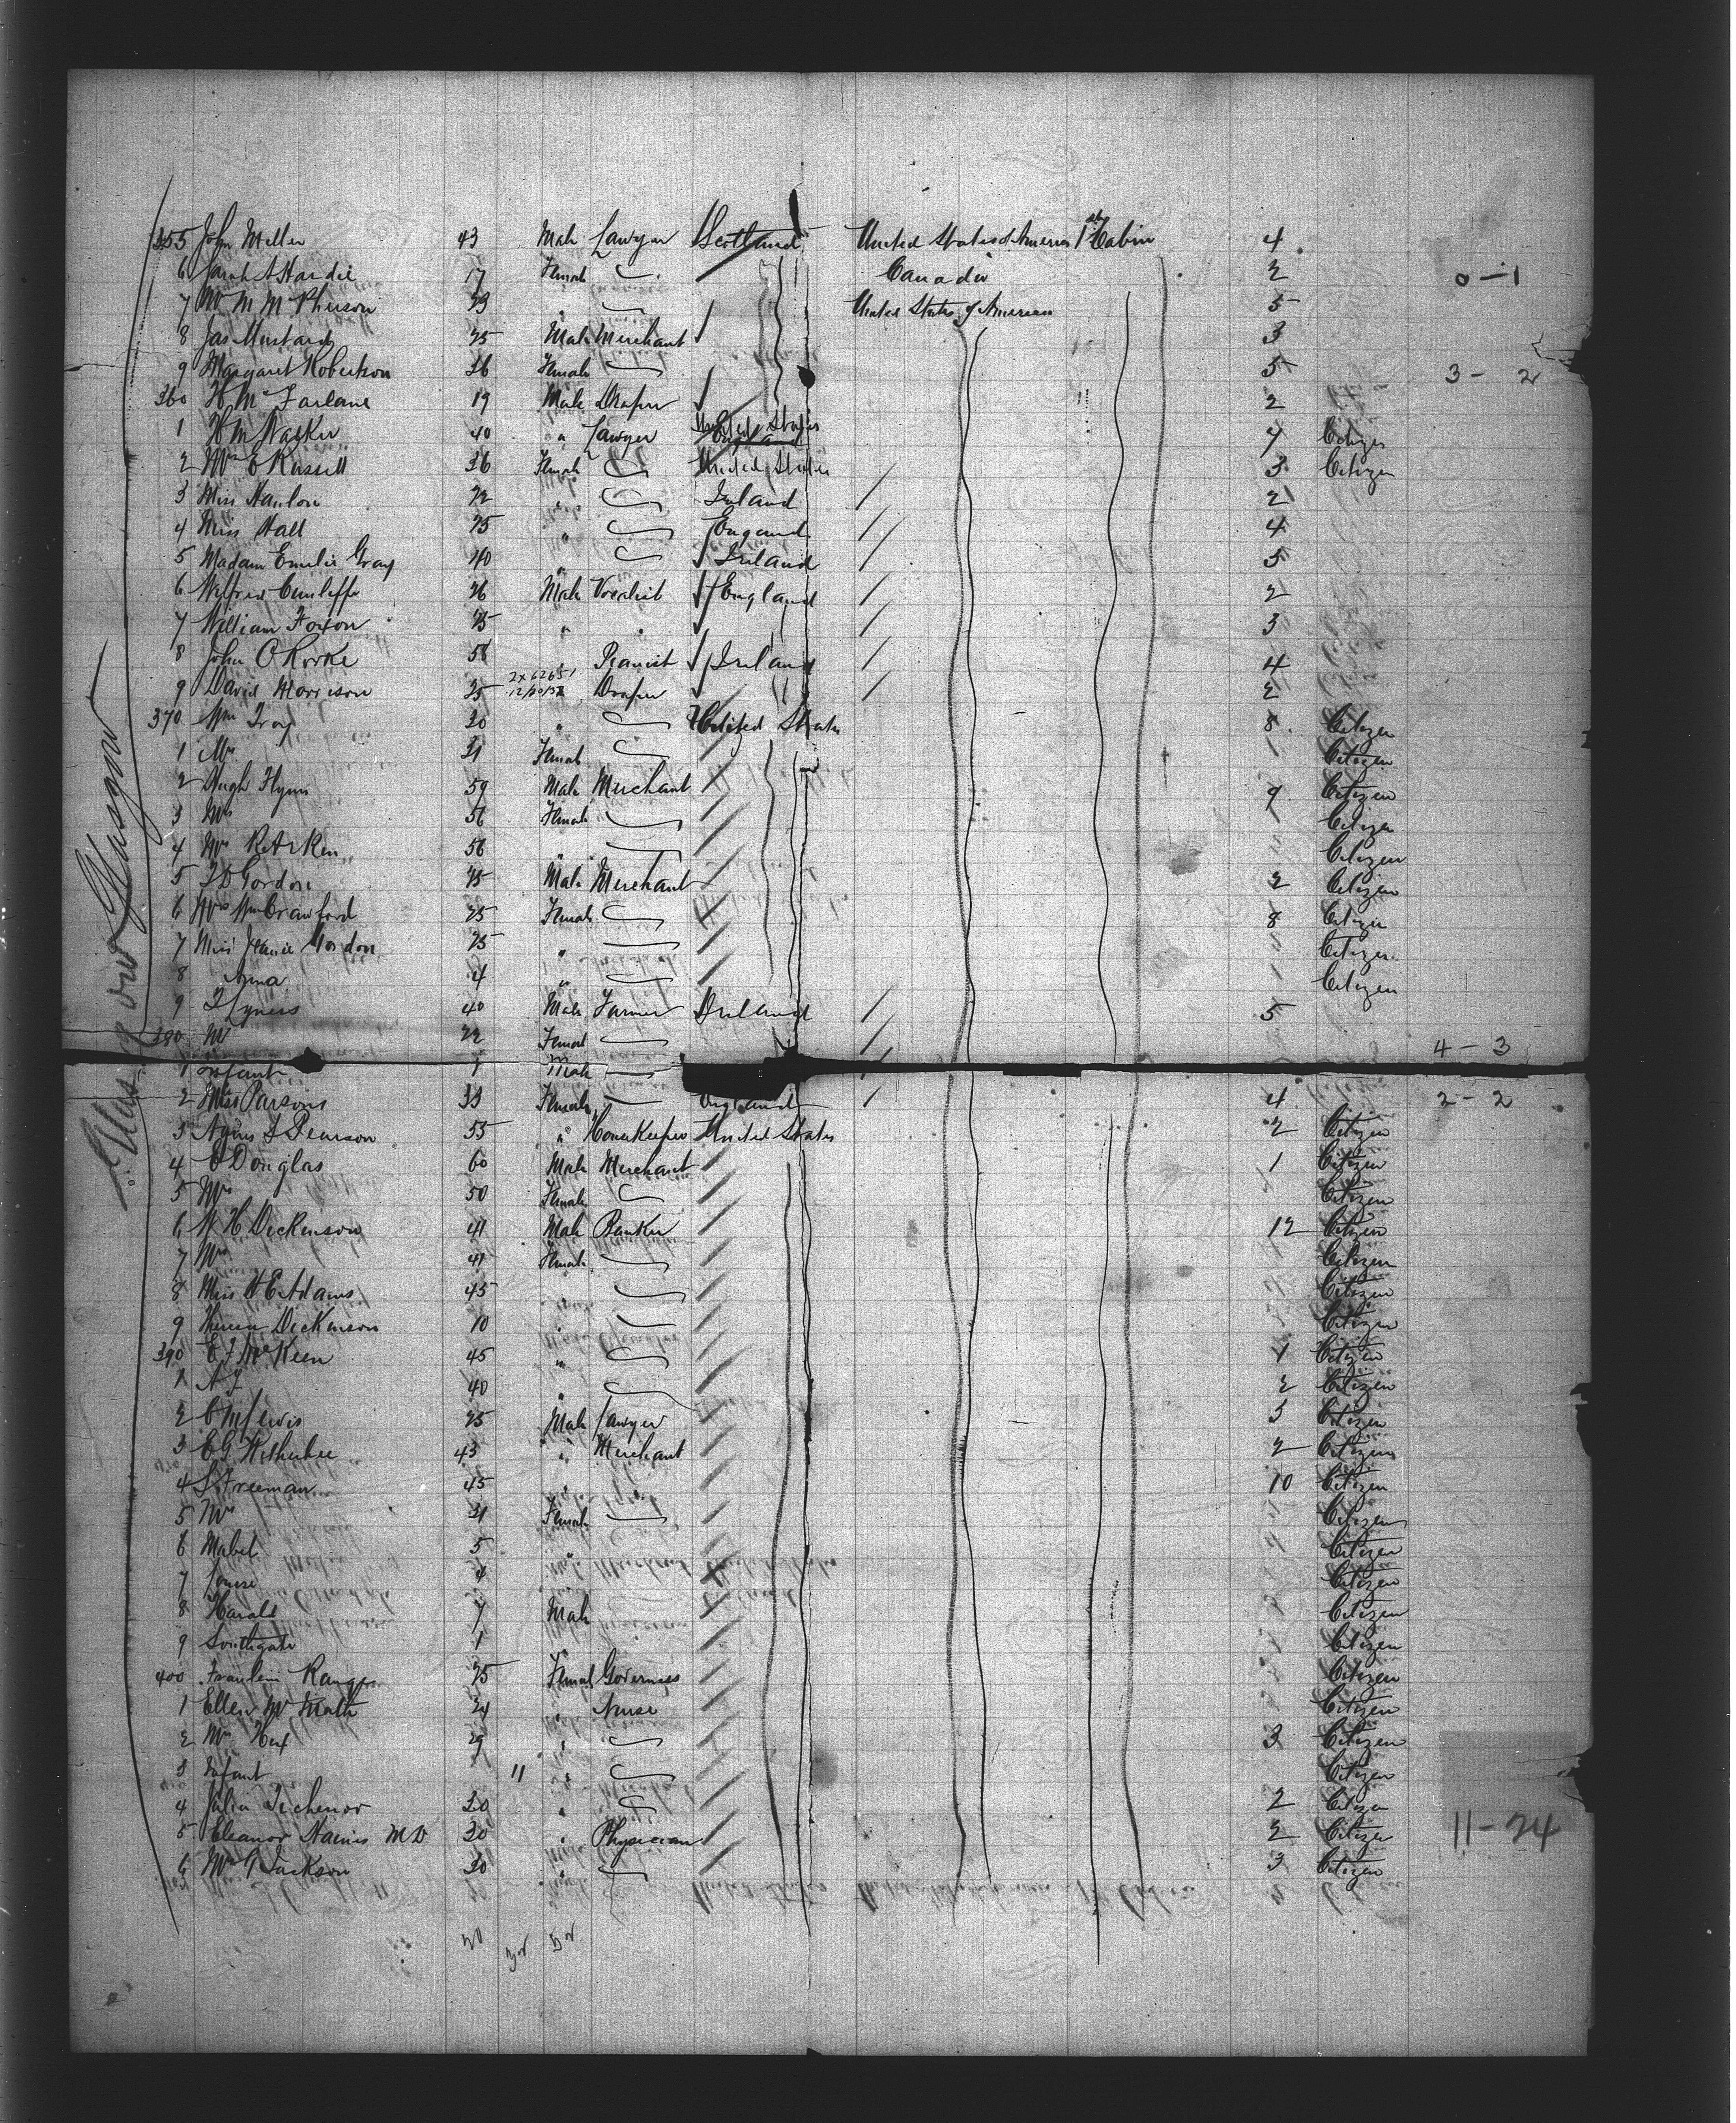 355 John Miller 43 Male Lawyer Scotland United States of America 1st Cabin 4
6 Sarah A Hardie 17 Female " Canada 2
7 Mrs M McPherson 23 " United States of America 5
8 Jas Mustard 25 Male Merchant 3
9 Margaret Robertson 26 Female 5
0-1
3 - 2
360 H McFarlane 19 Male Draper 2
1 H M 40 " Lawyer United States England 7 Citizen
2 Mrs E Russell 36 Female United States 3 Citizen
3 Miss Hanlon 22 " Ireland 2
4 Miss Hall 25 " England 4
5 Madam Emilie Gray 40 " Ireland 5
6 Wilfred Cunliffe 26 Male Vocalist England 2
7 William Foxon 25 " " 3
8 John O Rorke 58 " Pianist Ireland 4
9 David Morrison 25 2x62651 Draper 2
370 Wm Troy 30 " United States 8 Citizen
1 Mrs 31 Female Citizen
2 Hugh Flynn 59 Male Merchant 9 Citizen
3 Mrs 56 Female Citizen
4 Mrs R Arken 56 " Citizen
5 J D Gordon 45 Male Merchant 2 Citizen
6 Mrs Wm Crawford 25 Female 8 Citizen
7 Miss Jeanie Gordon 25 " Citizen
8 Anna 4 " Citizen
9 J Lyness 40 Male Farmer Ireland 5
380 Mrs 22 Female
4 - 3
1 Infant 1 Male
2 Miss Parsons 33 Female England 4
2 - 2
3 Agnes S Pearson 55 " Housekeeper United States 2 Citizen
4 C Douglas 60 Male Merchant 1 Citizen
5 Mrs 50 Female Citizen
6 W H Dickenson 41 Male Banker 12 Citizen
7 Mrs 41 Female Citizen
8 Miss H E Adams 45 " Citizen
9 Dickenson 10 " Citizen
390 E J McKeen 45 " 1 Citizen
1 A J 40 " 2 Citizen
2 C M Lewis 25 Male Lawyer 3 Citizen
3 C G Wetherbee 43 " Merchant 2 Citizen
4 S Freeman 45 " 10 Citizen
5 Mrs 31 Female Citizen
6 Mabel 5 " Citizen
7 Louise 4 Citizen
8 Harold 7 Male Citizen
9 Southgate 1 Citizen
400 Fraulein 25 Female Governess Citizen
1 Ellen Mc Math 24 " Nurse Citizen
2 Mrs 29 " 3 Citizen
3 Infant 11 " Citizen
4 Julia Tichenor 30 " 2 Citizen
5 Eleanor Haines M D 30 " Physician 2 Citizen
11 - 24
6 Mrs G Jackson 30 " 3 Citizen
Glasgow
Glasgow